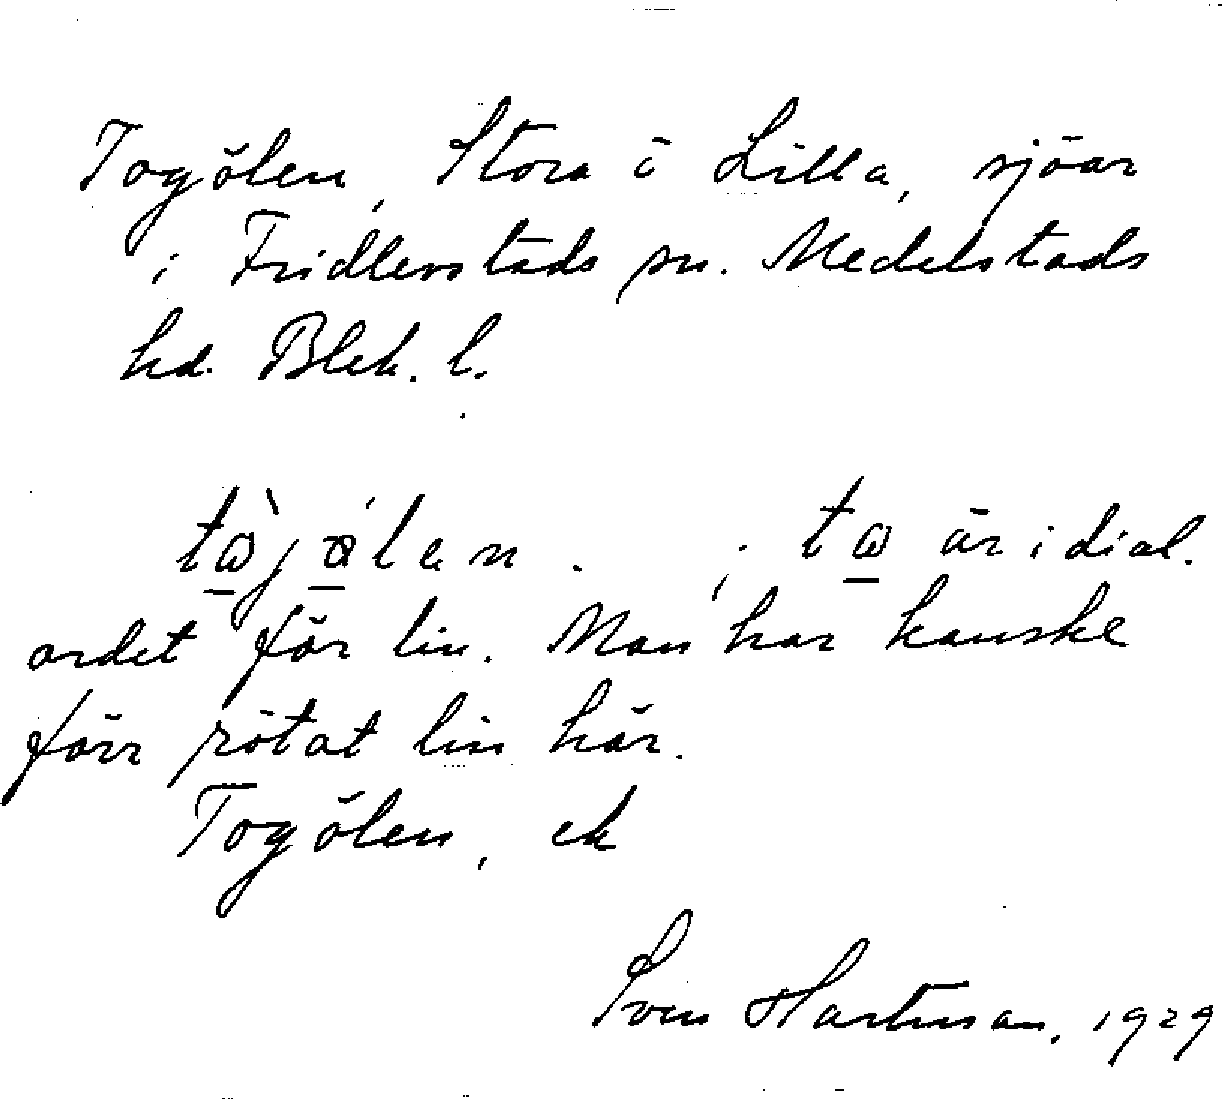 Togölen, Stora o Lilla, sjöar
i Fridlevstads sn. Medelstads
hd. Blek. l.
är i dial.
ordet för lin. Man har kanske
förr rötat lin här.
Togölen, ek
Sven Hartman, 1929